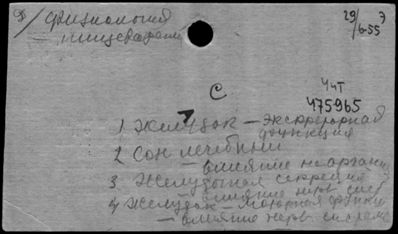 Ф/ физиология 29/6-55 Э
— пищеварения
С
ЧиТ
475965
1 Желудок — экскреторная
функция
2 Сон лечебный
— влияние на органи
3 Желудочная секреция
— влияние нерв. сист
4 Желудок — моторная функци
— влияние нерв. системы